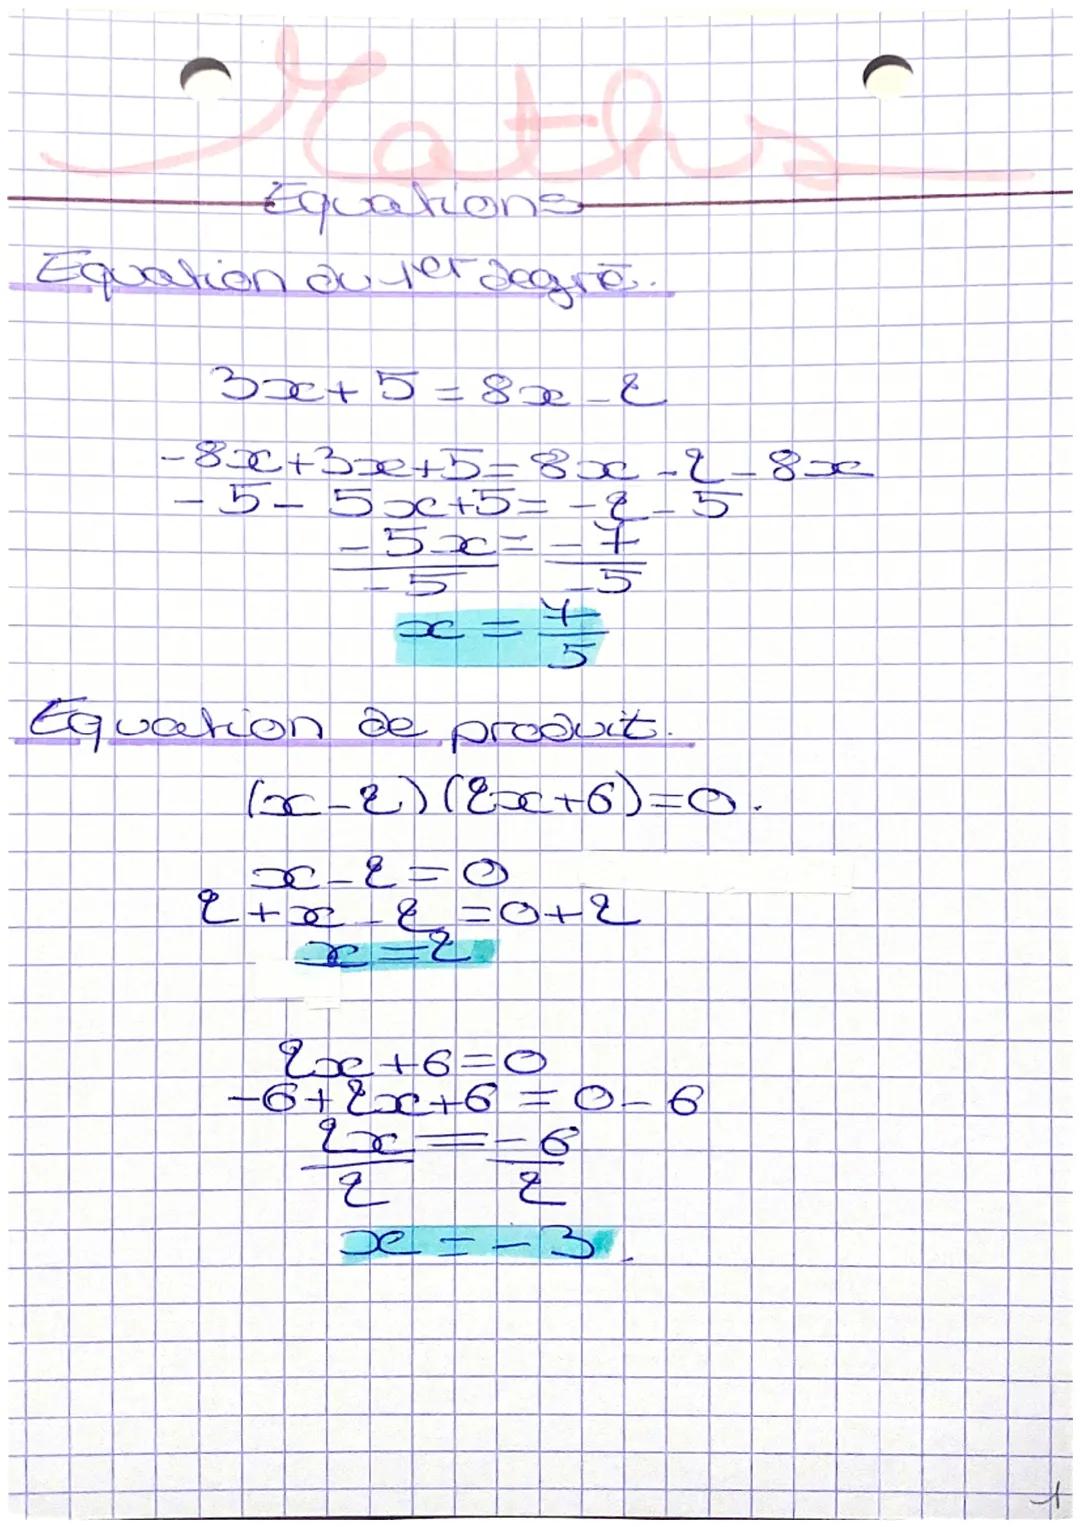 Maths
Equations
Equation du 1er degré.
3x + 5 = 8x - 2
-8x+3x+5 = 8x - 2 - 8x
-5 - 5x+5 = -2 - 5
-5x = -7
-5 -5
x = 7
5
Equation de produit.
(x-2)(2x+6)=0.
x-2=0
2+x-2=0+2
x=2
2x+6=0
-6+2x+6=0-6
2x=-6
2 2
x=-3.
1